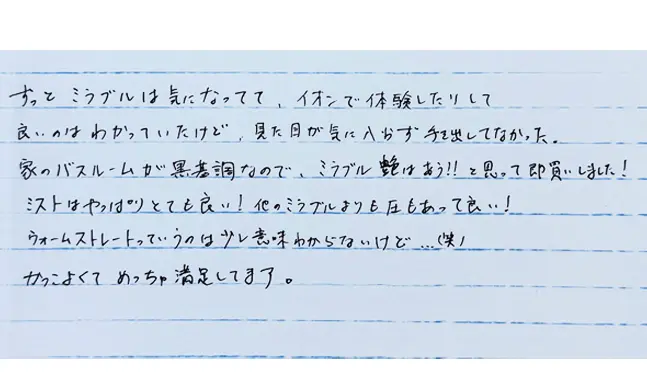 ずっと ミラブルは気になってて、イオンで体験したりして
良いのはわかっていたけど、見た目が気に入らず手を出してなかった。
家のバスルームが黒基調なので、ミラブル艶は合う!!と思って即買いしました!
ミストはやっぱりとても良い!他のミラブルよりも圧もあって良い!
ウォームストレートっていうのは少し意味わからないけど…(笑)
かっこよくてめっちゃ満足してます。